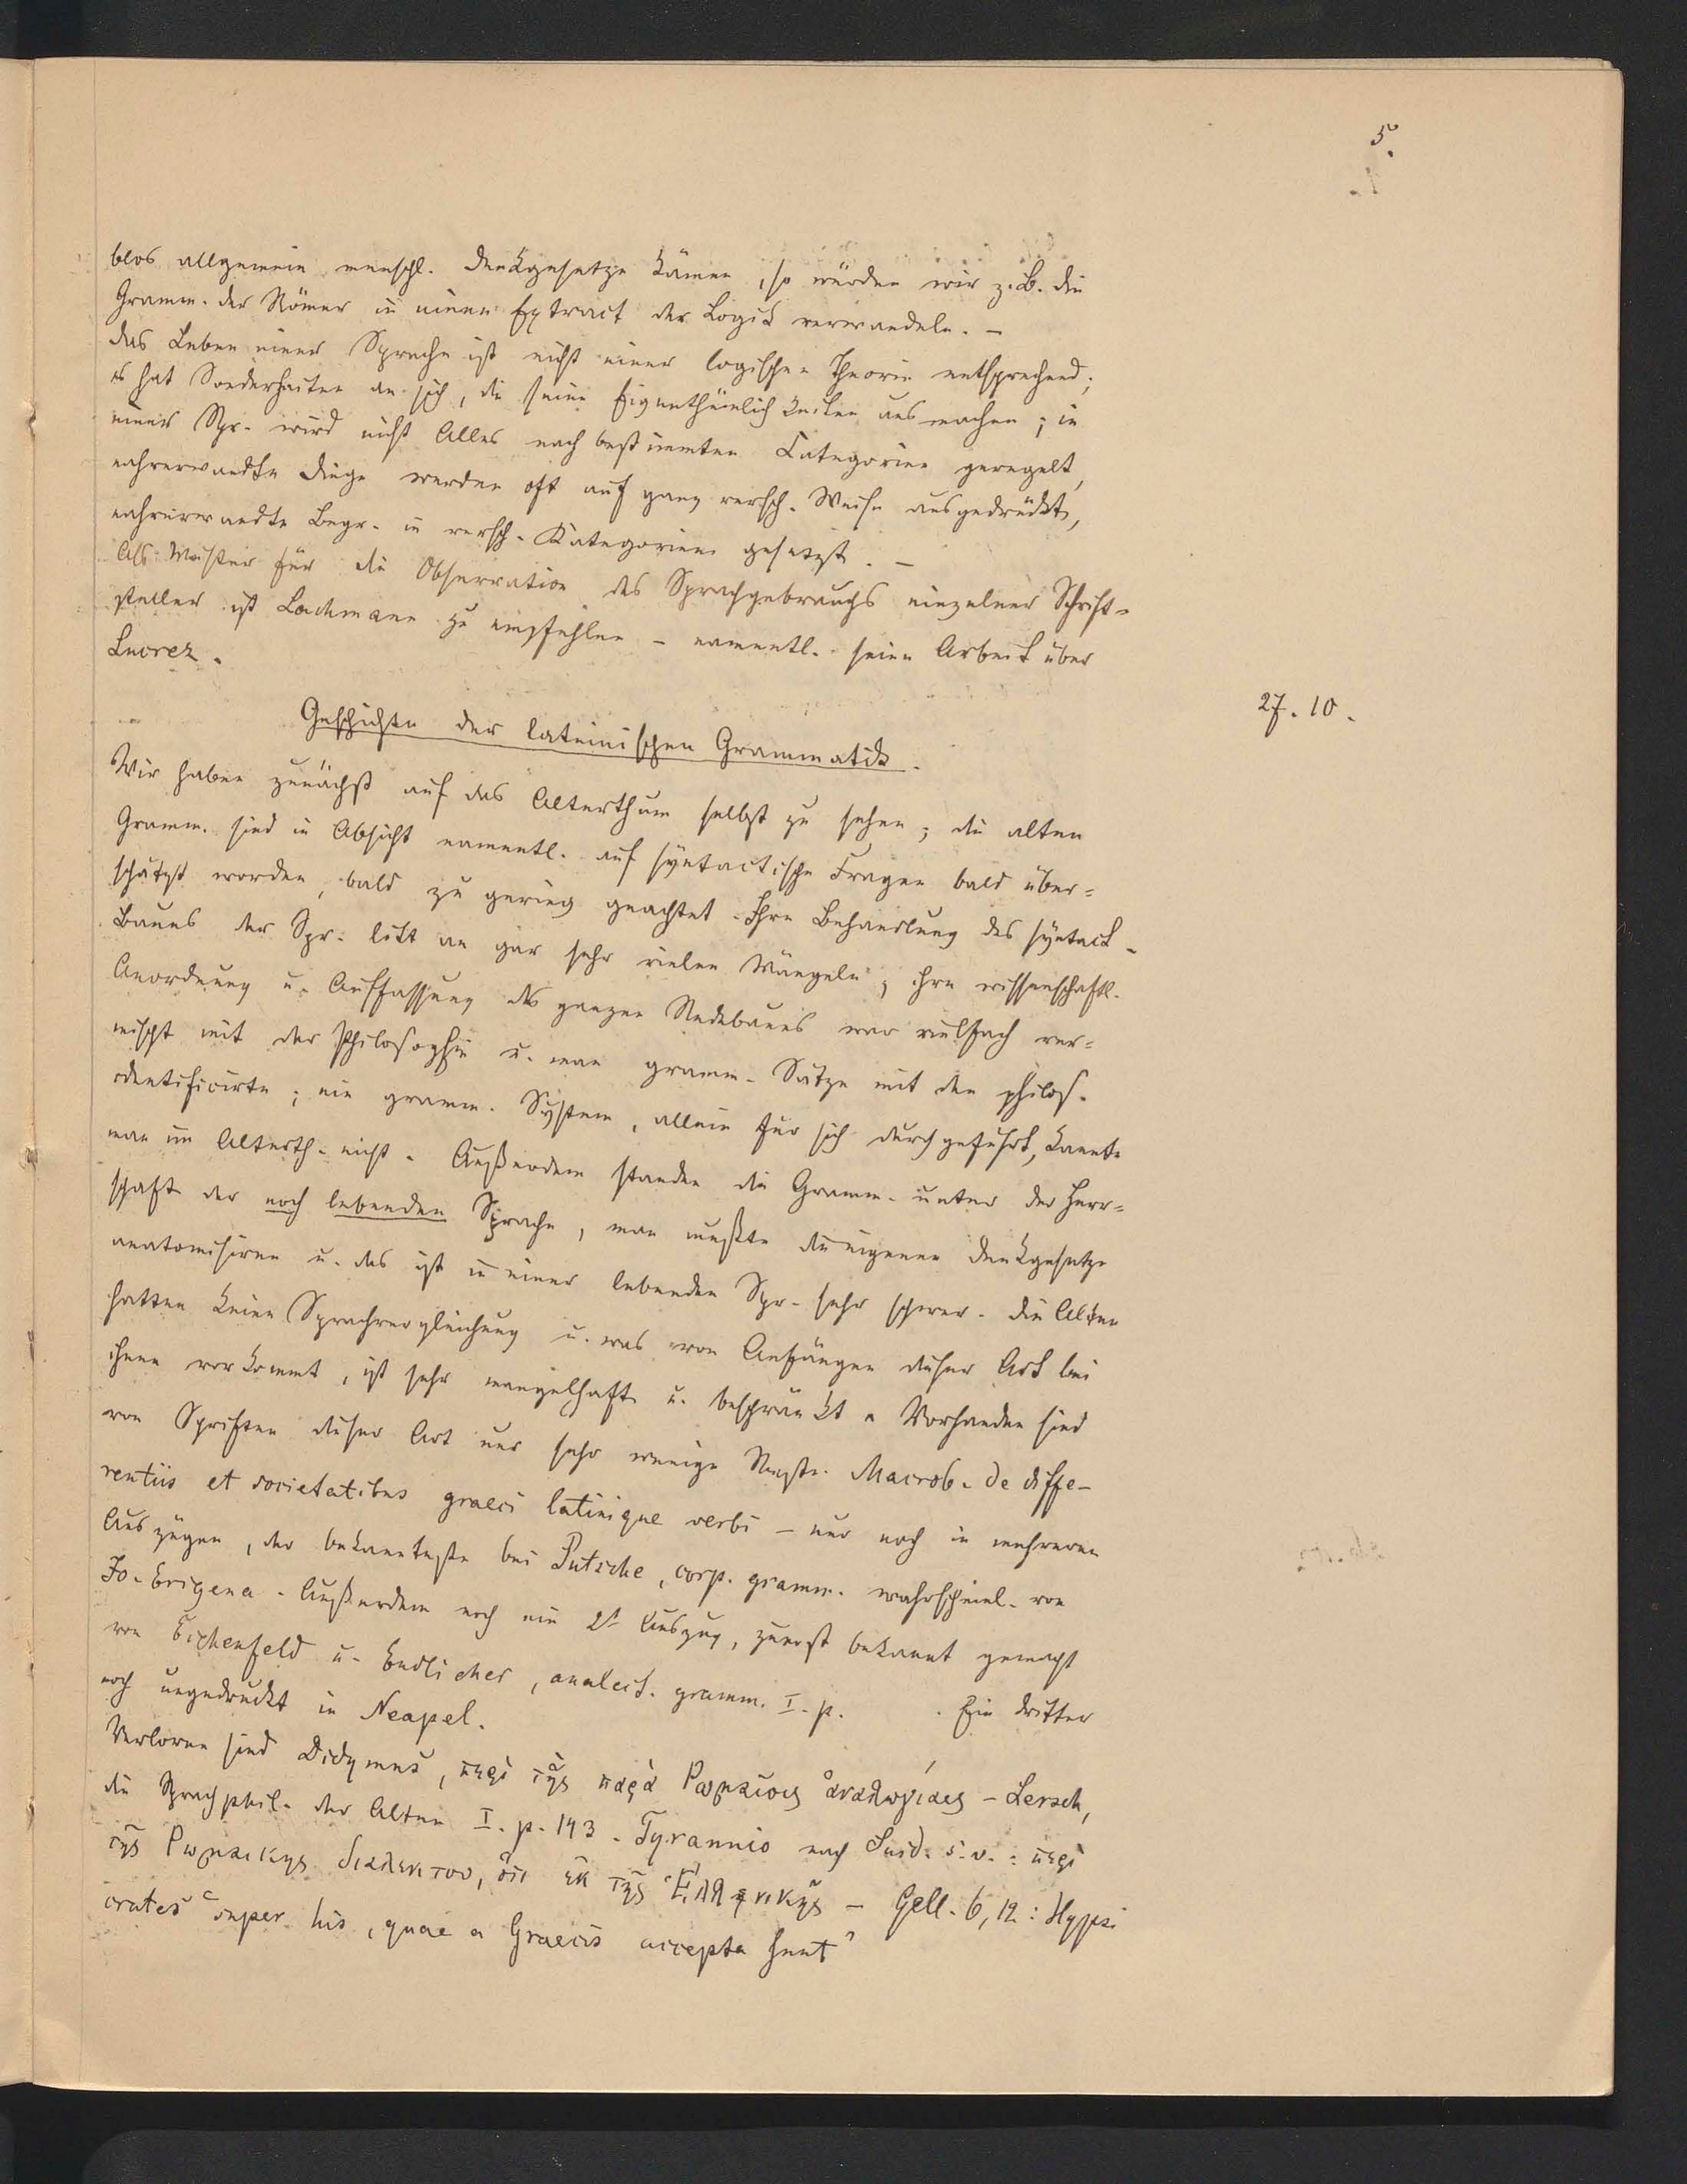 5.
blos allgemein menschl. Denkgesetze kämen, so würden wir z. B. die
Gramm. der Römer in einen Extract der Logik verwandeln. –
Das Leben einer Sprache ist nicht einer logischen Theorie entsprechend;
es hat Sonderheiten an sich, die seine Eigenthümlichkeiten ausmachen; in
einer Spr. wird nicht Alles nach bestimmten Categorien geregelt,
nahverwandte Dinge werden oft auf ganz versch. Weise ausgedrückt,
nahverwandte Begr. in versch. Kategorien gesetzt. –
Als Muster für die Observation des Sprachgebrauchs einzelner Schrift-
steller ist Lachmann zu empfehlen – namentl. seine Arbeit über
Lucrez.
27. 10.
Geschichte der lateinischen Grammatik.
Wir haben zunächst auf das Alterthum selbst zu sehen; die alten
Gramm. sind in Absicht namentl. auf syntactische Fragen bald über=
schätzt worden, bald zu gering geachtet. Ihre Behandlung des syntact.
Baues der Spr. litt an gar sehr vielen Mängeln; ihre wissenschaftl.
Anordnung u. Auffassung des ganzen Redebaues war vielfach ver=
mischt mit der Philosophie u. man gramm. Sätze mit den philos.
identificirte; ein gramm. System, allein für sich durchgeführt, kannte
man im Alterth. nicht. Außerdem standen die Gramm. unter der Herr=
schaft der noch lebenden Sprache, man mußte die eigenen Denkgesetze
anatomisiren u. das ist in einer lebenden Spr. sehr schwer. Die Alten
hatten keine Sprachvergleichung u. was von Anfängen dieser Art bei
ihnen vorkommt, ist sehr mangelhaft u. beschränkt. Vorhanden sind
von Schriften dieser Art nur sehr wenige Reste. Macrob. de diffe-
rentiis et societatibus graeci latinique verbi – nur noch in mehreren
Auszügen, der bekannteste bei Putsche, corp. gramm. wahrscheinl. von
Jo. Erigena. Außerdem noch ein 2t. Auszug, zuerst bekannt gemacht
von Eichenfeld u. Endlicher, analect. gramm. I. p. . Ein dritter
noch ungedruckt in Neapel.
Verloren sind Didymus, περὶ τῆς παρὰ Ρωμαίοις ἀναλογίας – Lersch,
die Sprachphil. der Alten I. p. 143. Tyrannio nach Suid. s. v.: περὶ
τῆς Ρωμαικης διαλεκτου, ὅτι ἐκ τῆς Ἑλληνικῆς – Gell. 6, 12: Hypsi
crates "super his, quae a Graecis accepta sunt"